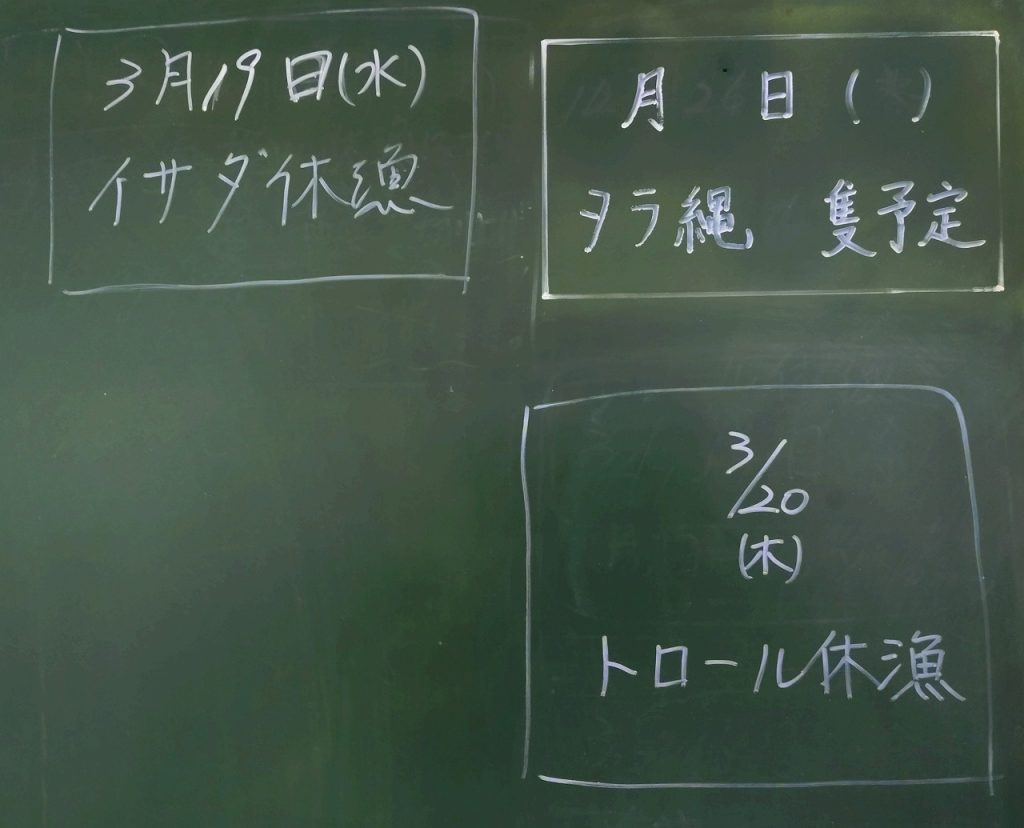 3月19日(水)
イサダ休漁
月 日 ( )
タラ縄 隻予定
3/20
(木)
トロール休漁